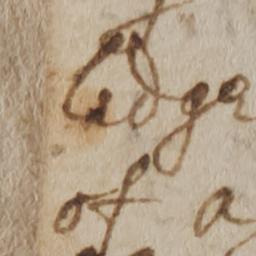 Edge
of a